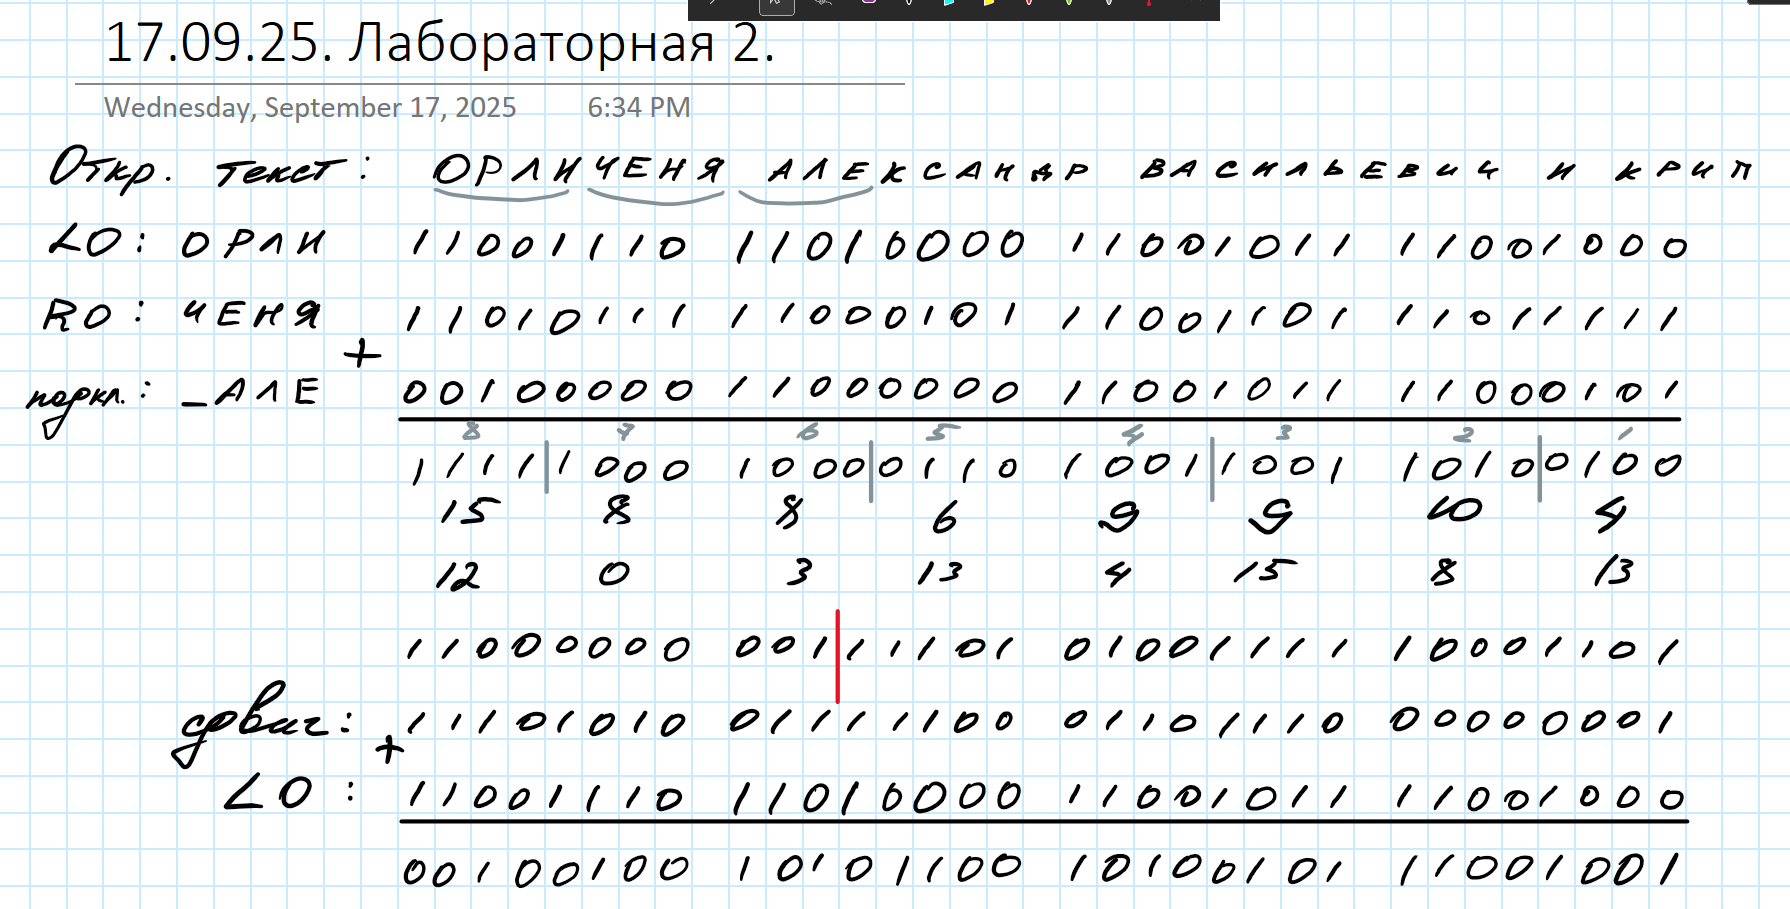 17.09.25. Лабораторная 2.
Wednesday, September 17, 2025 6:34 PM
Откр. текст: ОРЛИЧЕНЯ АЛЕКСАНДР ВАСИЛЬЕВИЧ И КРИП
L0: ОРЛИ 11001110 11010000 11001011 11001000
R0: ЧЕНЯ 11010111 11000101 11001101 11011111
+
подкл.: _АЛЕ 00100000 11000000 11001011 11000101
8 7 6 5 4 3 2 1
1111 1000 1000 0110 1001 1001 1010 0100
15 8 8 6 9 9 10 4
12 0 3 13 4 15 8 13
11000000 00111101 01001111 10001101
сдвиг: 11101010 01111100 01101110 00000001
+
L0: 11001110 11010000 11001011 11001000
00100100 10101100 10100101 11001001